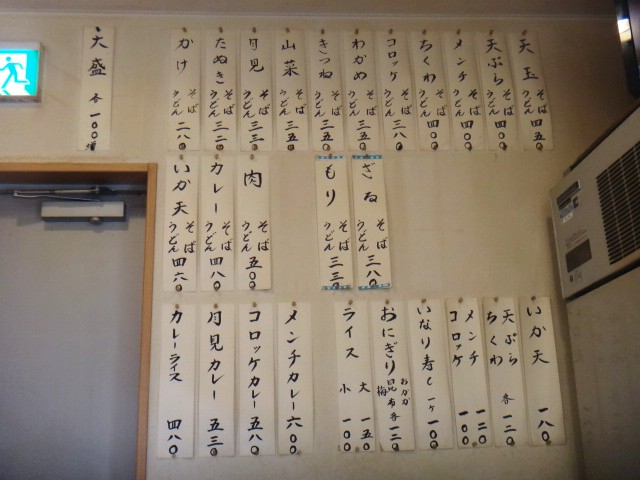 天玉 そば うどん 四五〇
天ぷら そば うどん 四〇〇
メンチ そば うどん 四〇〇
ちくわ そば うどん 四〇〇
コロッケ そば うどん 三八〇
わかめ そば うどん 三五〇
きつね そば うどん 三五〇
山菜 そば うどん 三五〇
月見 そば うどん 三三〇
たぬき そば うどん 三二〇
かけ そば うどん 二八〇
大盛 各一〇〇増
ざる そば うどん 三八〇
もり そば うどん 三三〇
肉 そば うどん 五〇〇
カレー そば うどん 四八〇
いか天 そば うどん 四六〇
いか天 一八〇
天ぷら ちくわ 各一二〇
メンチ 一二〇
コロッケ 一〇〇
いなり寿し 一ケ 一〇〇
おにぎり おかか 昆布 梅 各一二〇
ライス 大 一五〇
小 一〇〇
メンチカレー 六〇〇
コロッケカレー 五八〇
月見カレー 五三〇
カレーライス 四八〇